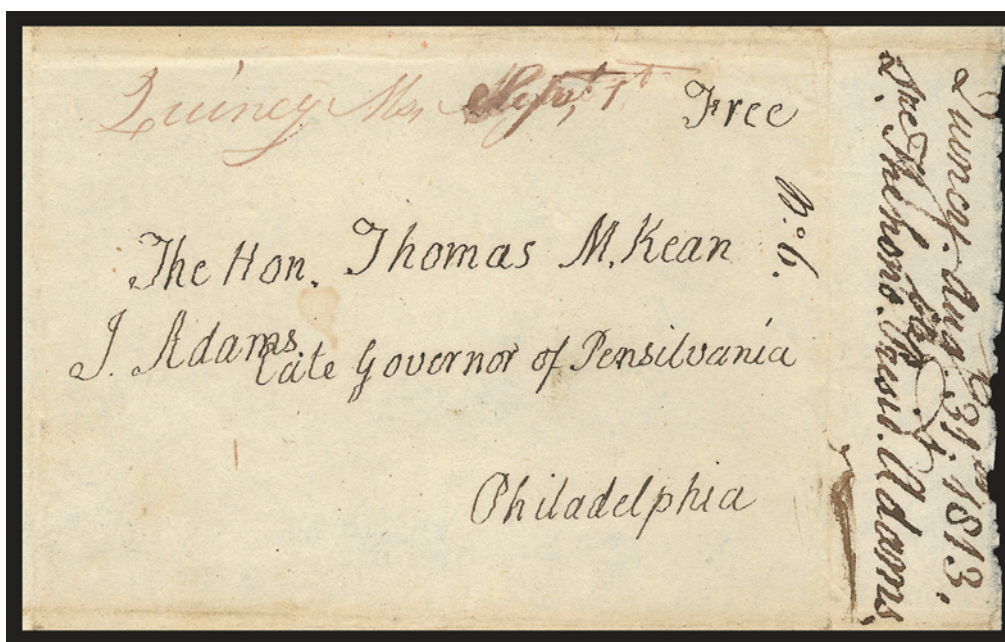 Quincy Ms, Sept 1st
Free
The Hon. Thomas M.Kean
J. Adams
late Governor of Pensilvania
Philadelphia
Quincy. Aug. 31. 1813.
The hon.
Adams